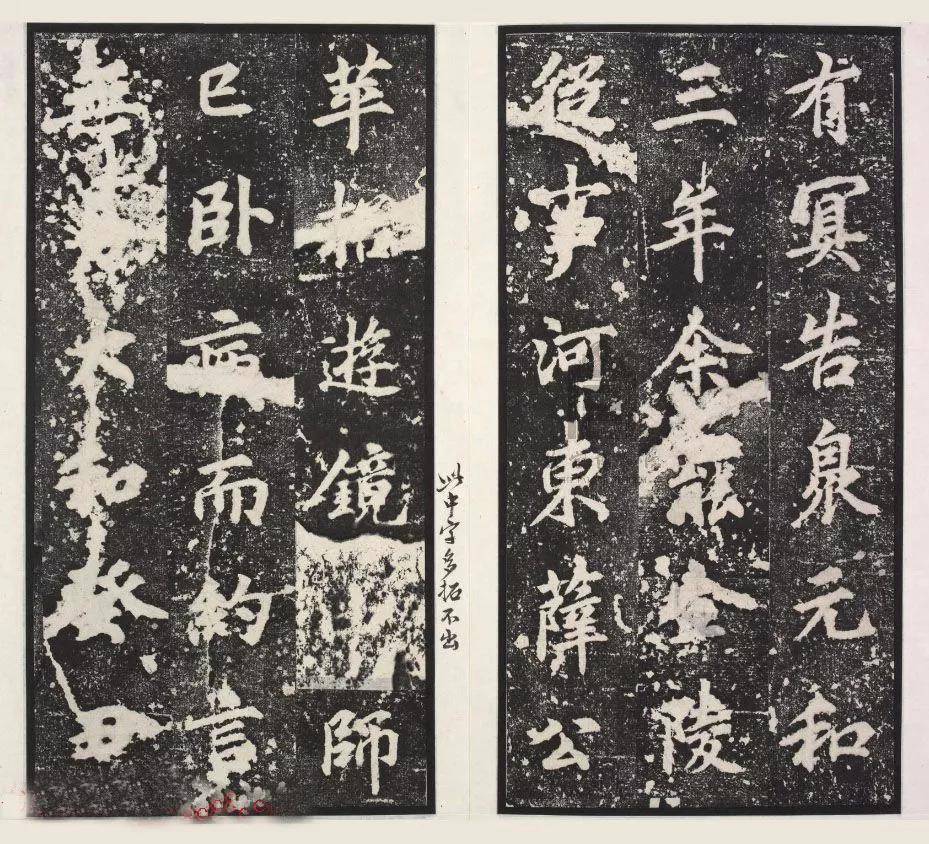 有冥告泉元和
三年余罷金陵
從事河東薛公
苹招遊鏡師
已卧疾而約言
無太和癸丑
此中字多拓不出